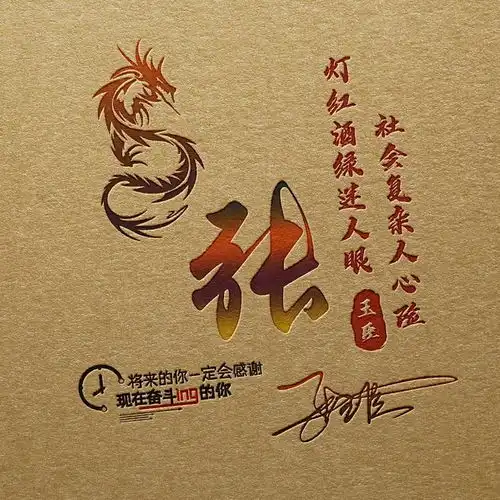 社会复杂人心险
灯红酒绿迷人眼
张
玉臣
将来的你一定会感谢
现在奋斗ing的你